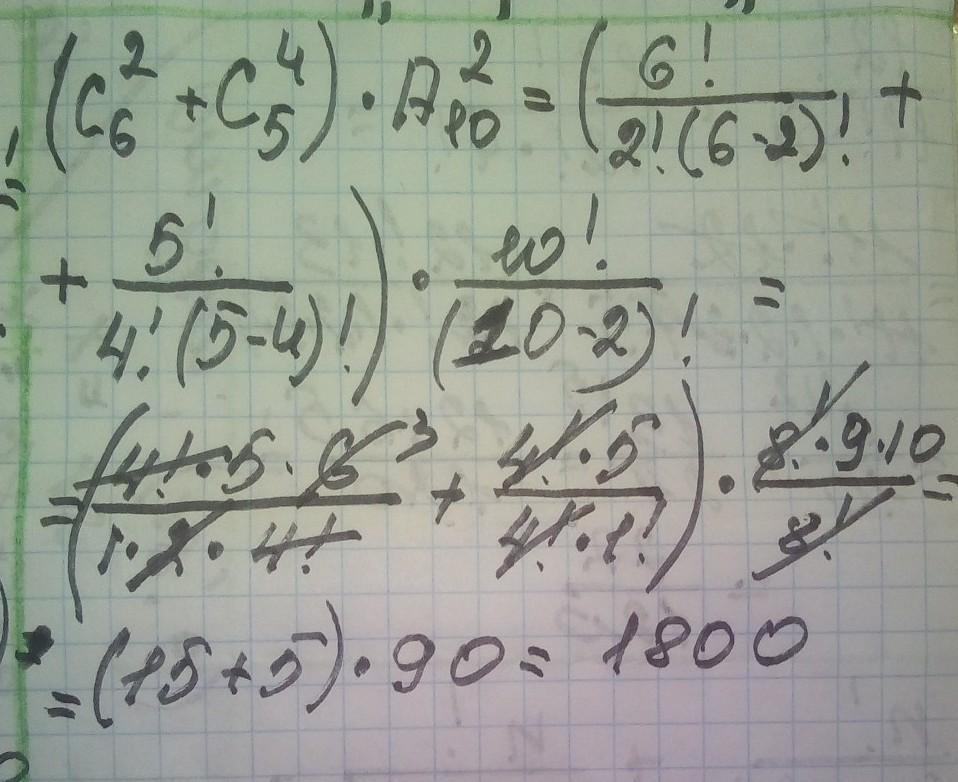 (C₆² + C₅⁴) · A₁₀² = (6! / 2!(6-2)! +
+ 5! / 4!(5-4)!) · 10! / (10-2)! =
= (4!·5·6 3 / 1·2·4! + 4!·5 / 4!·1!) · 8!·9·10 / 8! =
= (15+5)·90 = 1800